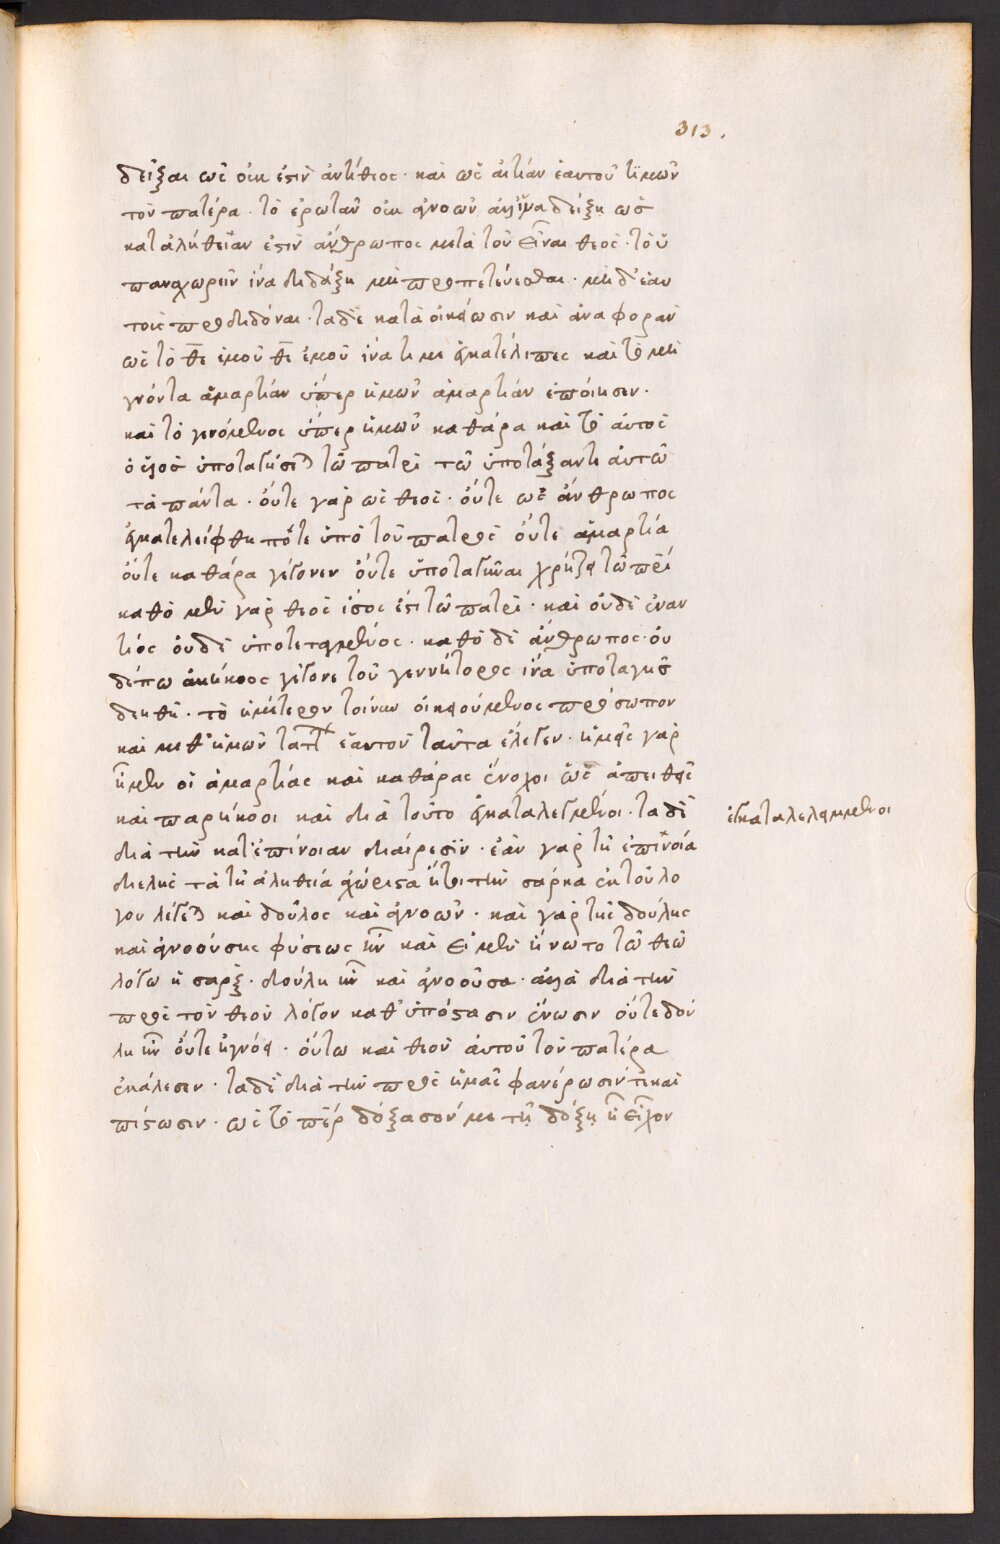 313.
δεῖξαι ὡς οὐκ ἔστιν ἀντίθεος· καὶ ὡς αἰτίαν ἑαυτοῦ τιμῶν
τὸν πατέρα· τὸ ἐρωτᾶν οὐκ ἀγνοῶν ἀλλ' ἵνα δείξη ὡς
κατ' ἀλήθειαν ἐστὶν ἄνθρωπος μετὰ τοῦ εἶναι θεός· τὸ ὑ
παναχωρεῖν ἵνα διδάξη μὴ προπετεύεσθαι· μὴ δ' ἑαυ
τοὺς προδιδόναι· τὰ δὲ κατὰ οἰκείωσιν καὶ ἀναφορὰν
ὡς τὸ θε̄ ἐμοῦ θε̄ ἐμοῦ ἵνα τί με ἐγκατέλιπες καὶ τὸ μὴ
γνόντα ἁμαρτίαν ὑπερ ἡμῶν ἁμαρτίαν ἐποίησεν·
καὶ τὸ γενόμενος ὑπερ ἡμῶν κατάρα καὶ τὸ αὐτὸς
ὁ υἱὸς ὑποταγήσεται τῶ πατρὶ τῶ ὑποτάξαντι αὐτῶ
τὰ πάντα· οὔτε γὰρ ὡς θεὸς· οὔτε ὡς ἄνθρωπος
ἐγκατελείφθη πότε ὑπὸ τοῦ πατρὸς οὔτε ἁμαρτία
οὔτε κατάρα γέγονεν οὔτε ὑποταγῆναι χρήζει τῶ πρι
καθὸ μὲν γὰρ θεὸς ἴσος ἐστὶ τῶ πατρὶ· καὶ οὐδὲ ἐναν
τίος οὐδὲ ὑποτεταγμένος· καθὸ δὲ ἄνθρωπος· οὐ
δέπω ἀνήκοος γέγονε τοῦ γεννήτορος ἵνα ὑποταγῆς
δεηθῆ· τὸ ἡμέτερον τοίνυν οἰκειούμενος πρόσωπον
καὶ μεθ' ἡμῶν τάττων ἑαυτὸν ταῦτα ἔλεγεν· ἡμεῖς γὰρ
ἦμεν οἱ ἁμαρτίας καὶ κατάρας ἔνοχοι ὡς ἀπειθεῖς
καὶ παρήκοοι καὶ διὰ τοῦτο ἐγκαταλεγμένοι· τὰ δὲ
ἐγκαταλελειμμένοι
διὰ τὴν κατ' ἐπίνοιαν διαίρεσιν· ἐὰν γὰρ τῆ ἐπινοία
διελῆς τὰ τῆ ἀληθεία ἀχώριστα ἤτοι τὴν σάρκα ἐκ τοῦ λό
γου λέγεται καὶ δοῦλος καὶ ἀγνοῶν· καὶ γὰρ τῆς δούλης
καὶ ἀγνοούσης φύσεως ἦν καὶ εἰ μὲν ἥνωτο τῶ θεῶ
λόγω ἡ σαρξ· δούλη ἦν καὶ ἀγνοοῦσα· ἀλλὰ διὰ τὴν
πρὸς τὸν θεὸν λόγον καθ' ὑπόστασιν ἕνωσιν οὔτε δού
λη ἦν οὔτε ἠγνόει· οὕτω καὶ θεὸν αὐτοῦ τὸν πατέρα
ἐκάλεσεν· τὰ δὲ διὰ τὴν πρὸς ἡμᾶς φανέρωσίν τε καὶ
πίστωσιν· ὡς τὸ περ δόξασόν με τῆ δόξη ἣ εἶχον